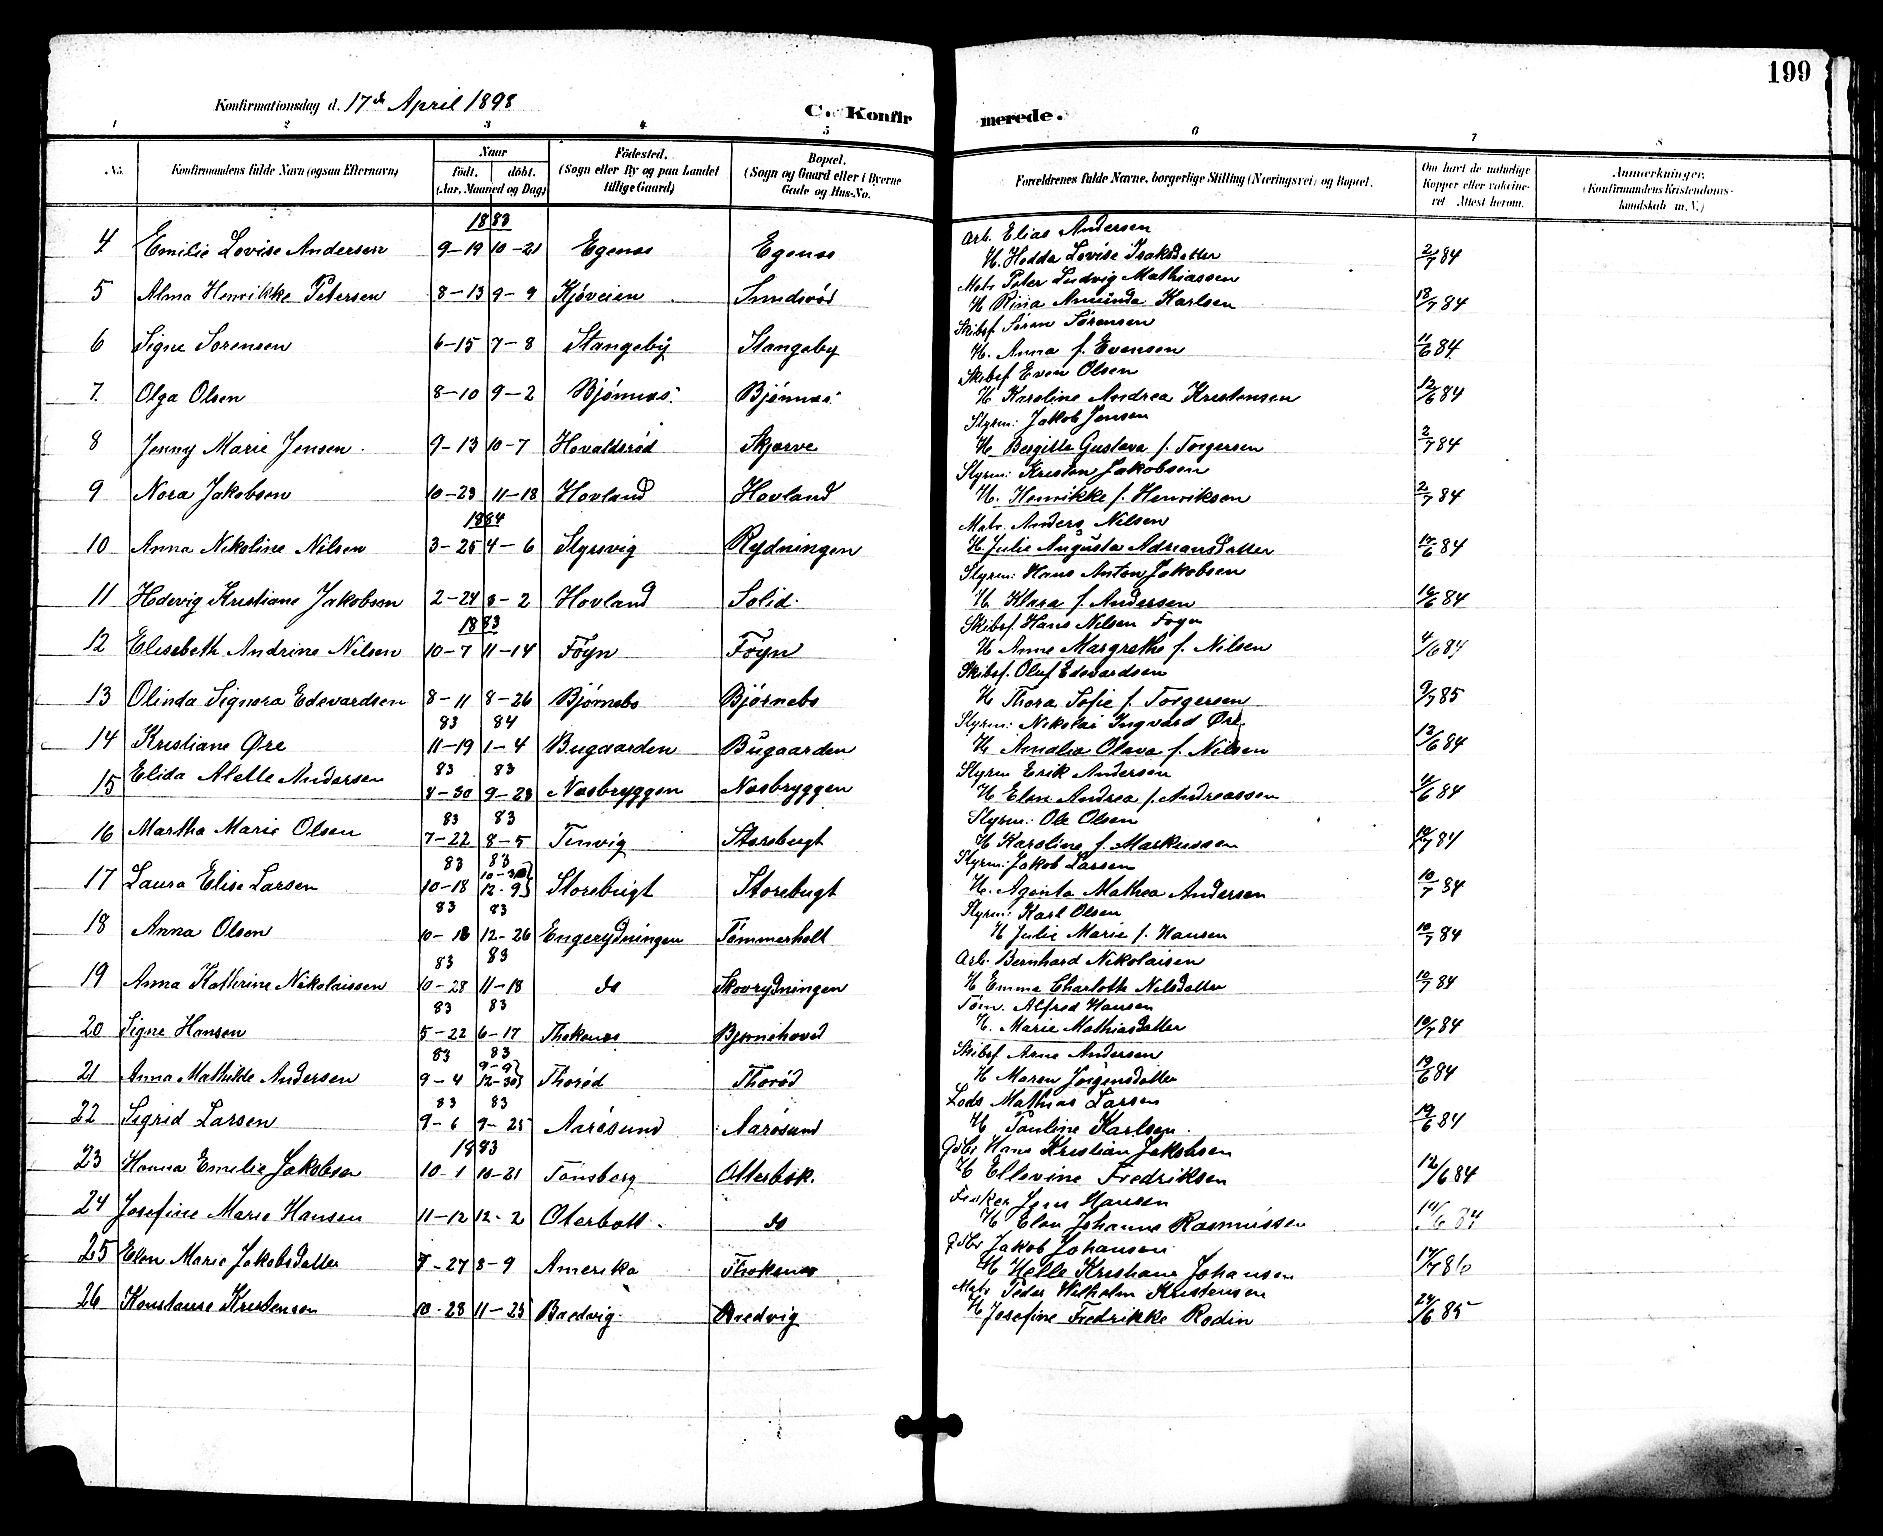 199
Konfirmationsdag d. 17de April 1898
C. Konfirmerede.
1 2 3 4 5 6 7 8
No. Konfirmandens fulde Navn (ogsaa Efternavn) Naar født. døbt. (Aar, Maaned og Dag) Födested. (Sogn eller By og paa Landet tillige Gaard) Bopæl. (Sogn og Gaard eller i Byerne Gade og Hus-No. Forældrenes fulde Navne, borgerlige Stilling (Næringsvei) og Bopæl. Om havt de naturlige Kopper eller vakcineret Attest herom. Anmerkninger. (Konfirmandens Kristendomskundskab m. V.)
1883
Arb. Elias Andersen
4 Emilie Lovise Andersen 9-19 10-21 Egenæs Egenæs H. Hedda Lovise Isaksdatter 2/7 84
Matr. Peter Ludvig Mathiassen
5 Alma Henrikke Petersen 8-13 9-9 Kjöveien Sundsröd H Rina Amunda Karlsen 18/7 84
Skibsf. Sören Sörensen
6 Signe Sorensen 6-15 7-8 Stangeby Stangeby H. Anna f. Evensen 11/6 84
Skibsf Even Olsen
7. Olga Olsen 8-10 9-2 Bjönnæs Bjönnæs H Karoline Andrea Kristensen 12/6 84
Styrm: Jakob Jensen
8 Jenny Marie Jensen 9-13 10-7 Hovaldsröd Skjærve H Bergitte Gustava f. Torgersen 2/7 84
Styrm: Kristen Jakobsen
9 Nora Jakobsen 10-23 11-18 Hovland Hovland H. Henrikke f. Henriksen 2/7 84
1884
Matr. Anders Nilsen
10 Anna Nikoline Nilsen 3-25 4-6 Styrsvig Rydningen H Julie Augusta Adriansdatter 14/6 84
Styrm: Hans Anton Jakobsen
11 Hedevig Kristiane Jakobsen 2-24 3-2 Hovland Solid H Klara f. Andersen 16/6 84
1883
Skibsf. Hans Nilsen Foyn
12 Elisabeth Andrine Nilsen 10-7 11-14 Föyn Föyn H Anne Margrethe f. Nilsen 4/6 84
Skibsf. Oluf Edevardsen
13 Olinda Signora Edevardsen 8-11 8-26 Bjørnebo Bjørnebo H Thora Sofie f. Torgersen 9/7 85
83 84
Styrm: Nikolai Ingvard Øre
14 Kristiane Øre 11-19 1-4 Bugaarden Bugaarden H Amalia Olava f. Nilsen 12/6 84
83 83
Styrm Erik Andersen
15 Elida Alette Andersen 8-30 9-23 Næsbryggen Næsbryggen H Elen Andrea f. Andreassen 4/6 84
83 83
Styrm: Ole Olsen
16 Martha Marie Olsen 7-22 8-5 Tenvig Storebergt H Karoline f. Markussen 10/7 84
83 83
10-30
Styrm: Jakob Larsen
17 Laura Elise Larsen 10-18 12-9 Storebugt Storebugt H. Agenta Mathea Andersen 10/7 84
83 83
Styrm: Karl Olsen
18 Anna Olsen 10-18 12-26 Engerydningen Tömmerholt H Julie Marie f. Hansen 10/7 84
83 83
Arb. Bernhard Nikolaisen
19 Anna Kathrine Nikolaissen 10-28 11-18 do Skovrydningen H Emma Charlotte Nilsdatter 10/7 84
83 83
Töm. Alfred Hansen
20 Signe Hansen 5-22 6-17 Thokenæs Bjørnehoved H. Marie Mathiasdatter 10/7 84
83 83
9-9
Skibsf Arne Andersen
21 Anna Mathilde Andersen 9-4 12-30 Thoröd Thoröd H Maren Jörgensdatter 19/6 84
83 83
Lods Mathias Larsen
22 Sigrid Larsen 9-6 9-25 Aarösund Aarösund H Pauline Karlsen 19/6 84
1883
Gdbr Hans Kristian Jakobsen
23 Hanna Emelie Jakobsen 10-1 10-21 Tönsberg Otterbæk. H Ellevine Fredriksen 12/6 84
Fisker Jens Hansen
24 Josefine Marie Hansen 11-12 12-2 Oterbæk do H Elen Johanne Rasmussen 14/6 84
Gdbr Jakob Johansen
25 Elen Marie Jakobsdatter 7-27 8-9 Amerika Thokenæs H Helle Kristiane Johansen 17/7 86
Matr Peder Wilhelm Kristensen
26 Konstanse Kristensen 10-28 11-25 Bredvig Bredvig H Josefine Fredrikke Rodin 24/6 85